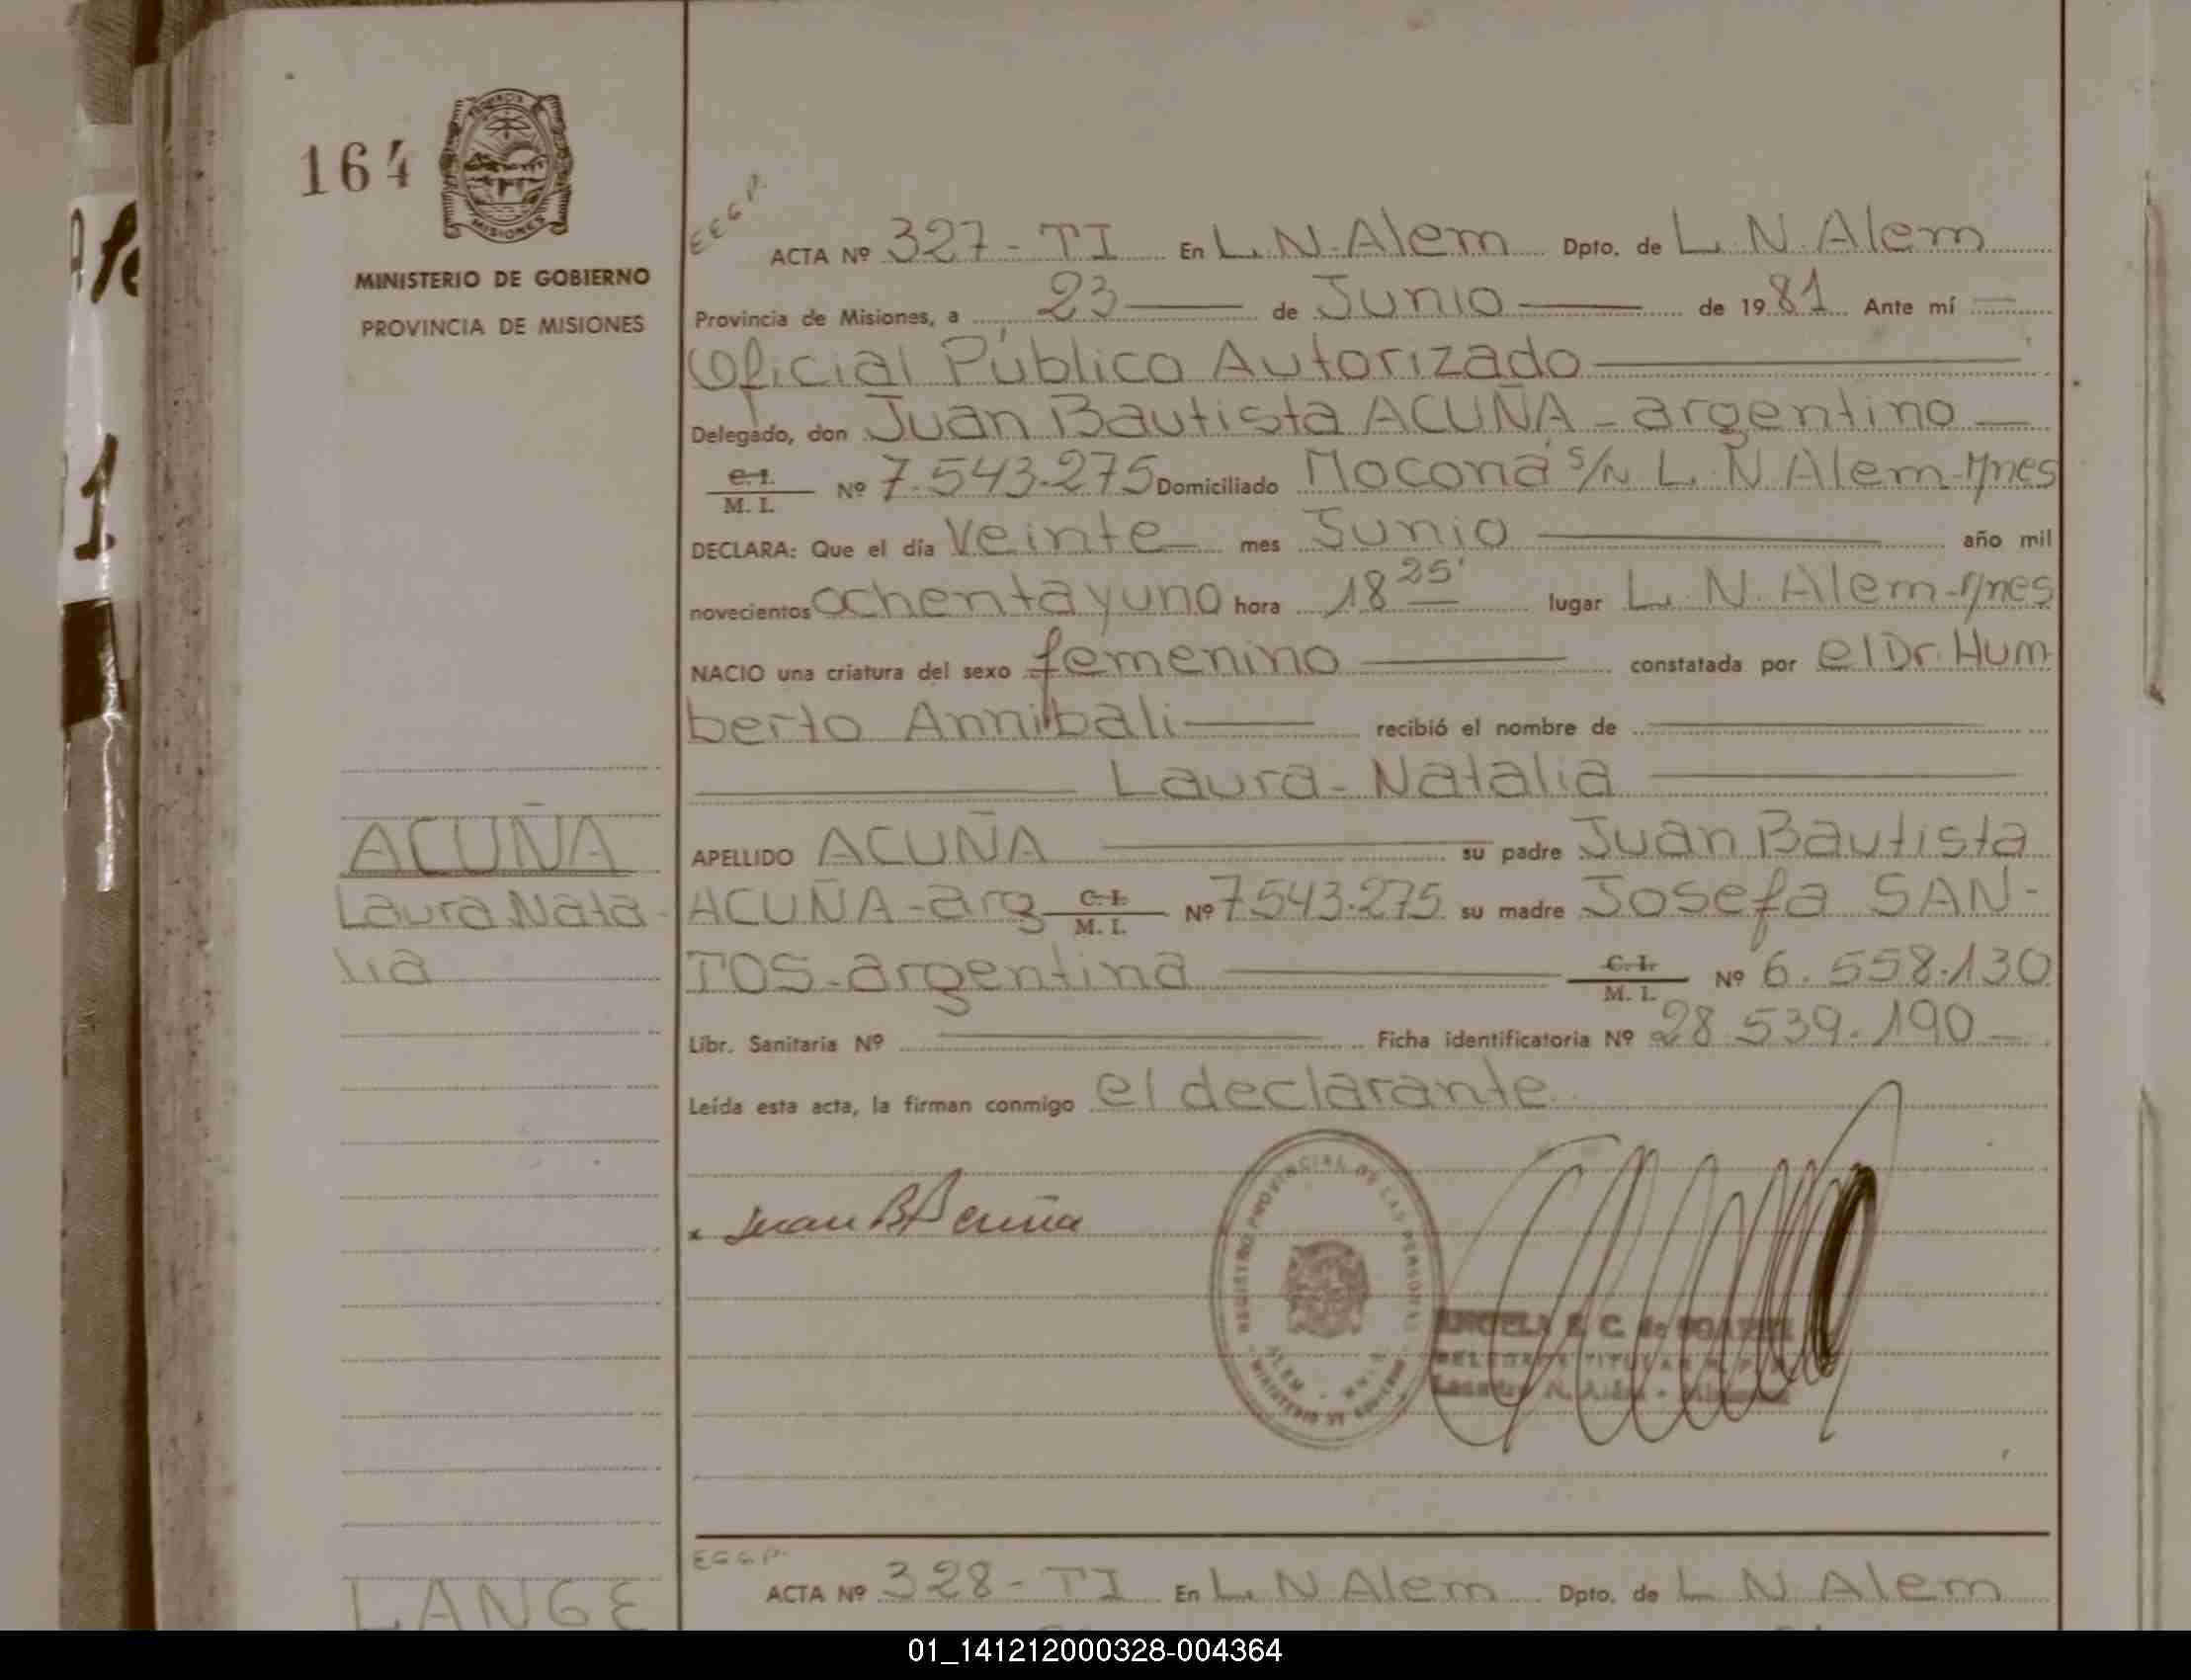 164
PROVINCIA
MISIONES
MINISTERIO DE GOBIERNO
PROVINCIA DE MISIONES
1
EEGP.
ACTA Nº 327-TI En L. N. Alem Dpto. de L. N. Alem
Provincia de Misiones, a 23 de Junio de 1981 Ante mí
Oficial Público Autorizado
Delegado, don Juan Bautista ACUÑA - argentino
C. I. M. I. Nº 7.543.275 Domiciliado Moconá s/n L. N Alem-Mnes
DECLARA: Que el día Veinte mes Junio año mil
novecientos ochentayuno hora 18 25' lugar L. N. Alem-Mnes
NACIO una criatura del sexo femenino constatada por el Dr. Hum
berto Annibali recibió el nombre de
Laura-Natalia
ACUÑA
APELLIDO ACUÑA su padre Juan Bautista
Laura Nata-
ACUÑA-arg C. I. M. I. Nº 7.543.275 su madre Josefa SAN-
lia
TOS-argentina C. I. M. I. Nº 6.558.130
Libr. Sanitaria Nº Ficha identificatoria Nº 28.539.190
Leída esta acta, la firman conmigo el declarante
REGISTRO PROVINCIAL DE LAS PERSONAS
x Juan B Acuña
ALEM - MNES
MINISTERIO DE GOBIERNO
C. de
DELEGADA TITULAR R. P. P.
Leandro N. Alem - Misiones
EGGP.
ACTA Nº 328-TI En L. N Alem Dpto. de L N Alem
LANGE
01_141212000328-004364